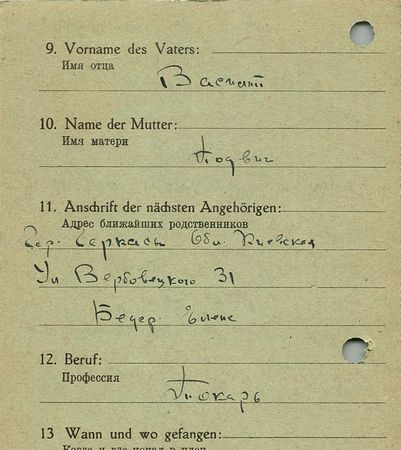 9. Vorname des Vaters:
Имя отца
Василий
10. Name der Mutter:
Имя матери
11. Anschrift der nächsten Angehörigen:
Адрес ближайших родственников
Гор. Черкасы Обл. Киевская
Ул Вербовецкого 31
Елена
12. Beruf:
Профессия
Токарь
13 Wann und wo gefangen:
Когда и где попал в плен